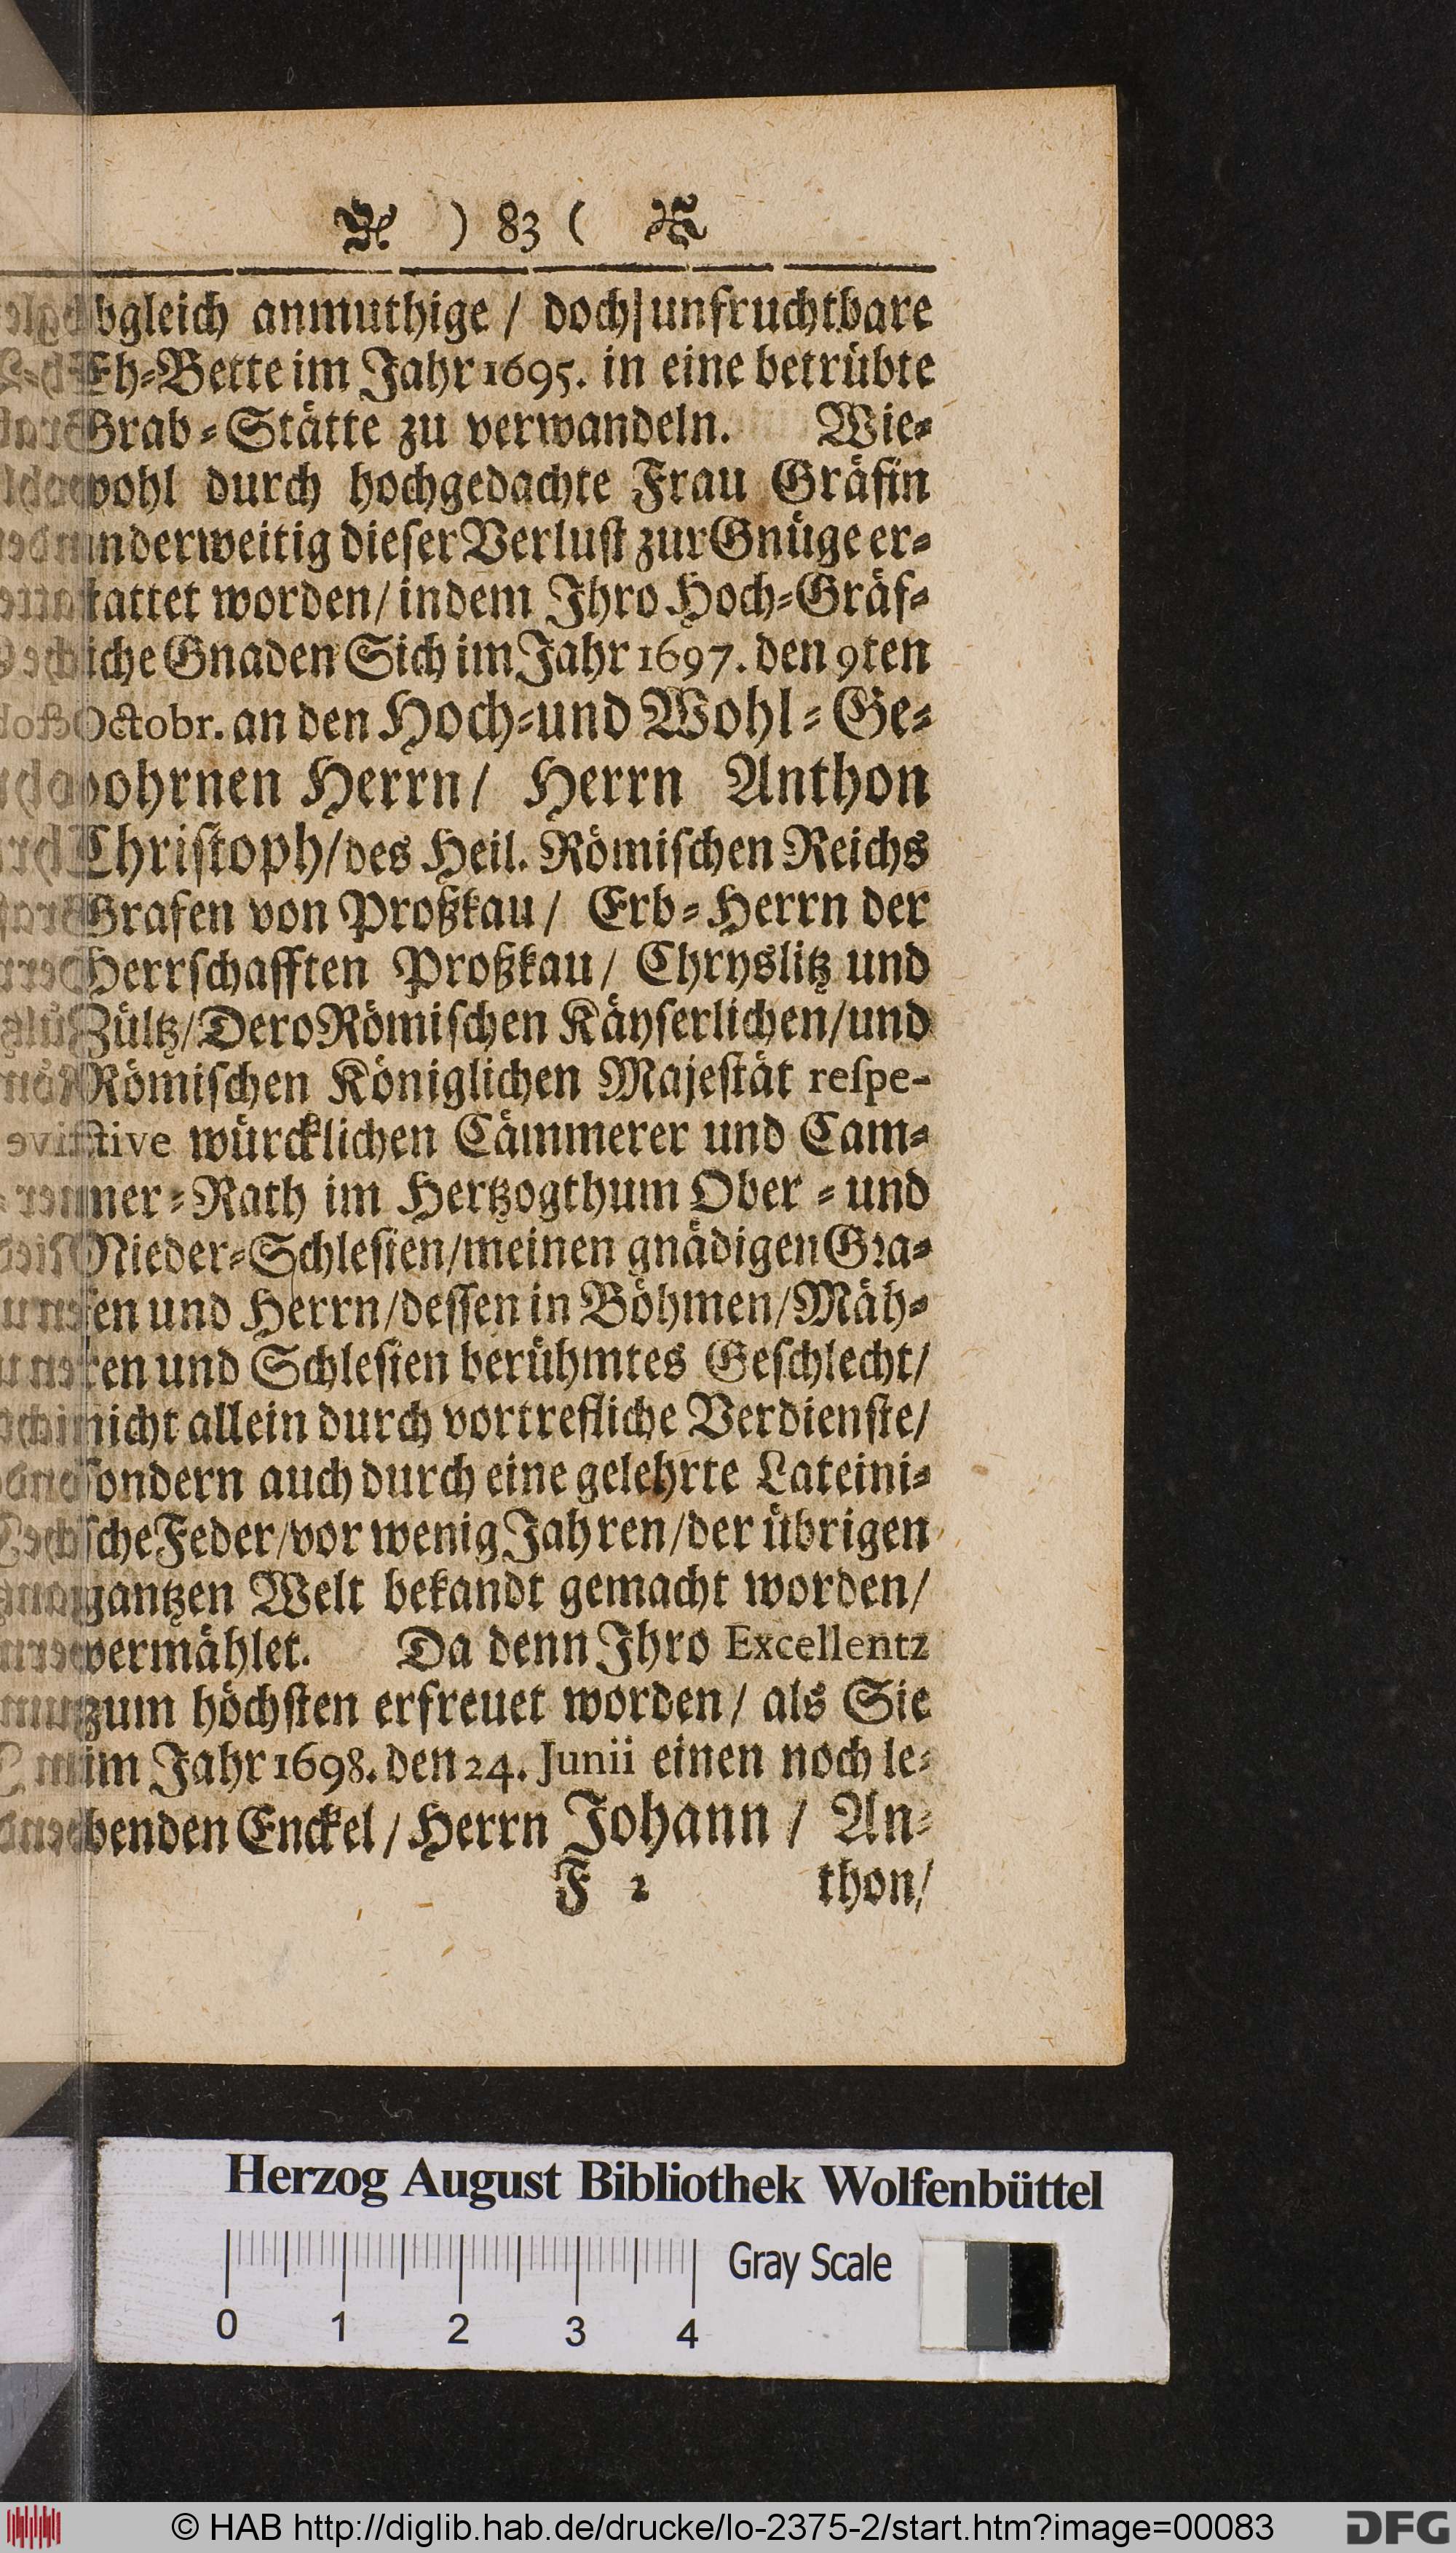 ) 83 (
obgleich anmuthige / doch unfruchtbare
Eh-Bette im Jahr 1695. in eine betrübte
Grab-Stätte zu verwandeln. Wie-
wohl durch hochgedachte Frau Gräfin
anderweitig dieser Verlust zur Gnüge er-
stattet worden/ indem Ihro Hoch-Gräf-
liche Gnaden Sich im Jahr 1697. den 9ten
Octobr. an den Hoch-und Wohl-Ge-
bohrnen Herrn/ Herrn Anthon
Christoph/des Heil. Römischen Reichs
Grafen von Proßkau/ Erb-Herrn der
Herrschafften Proßkau/ Chryslitz und
Zültz/Dero Römischen Käyserlichen/und
Römischen Königlichen Majestät respe-
ctive würcklichen Cämmerer und Cam-
mer-Rath im Hertzogthum Ober-und
Nieder-Schlesien/meinen gnädigen Gra-
fen und Herrn/dessen in Böhmen/Mäh-
ren und Schlesien berühmtes Geschlecht/
nicht allein durch vortrefliche Verdienste/
sondern auch durch eine gelehrte Lateini-
sche Feder/vor wenig Jahren/der übrigen
gantzen Welt bekandt gemacht worden/
vermählet. Da denn Ihro Excellentz
zum höchsten erfreuet worden/ als Sie
im Jahr 1698. den 24. Junii einen noch le-
benden Enckel / Herrn Johann / An-
F 2 thon/
Herzog August Bibliothek Wolfenbüttel
Gray Scale
0 1 2 3 4
© HAB http://diglib.hab.de/drucke/lo-2375-2/start.htm?image=00083
DFG